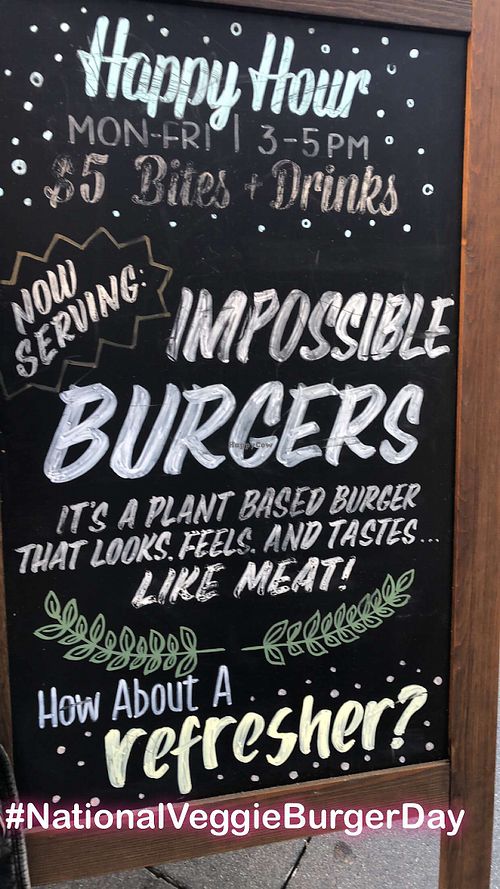 Happy Hour
MON-FRI | 3-5PM
$5 Bites + Drinks
NOW
SERVING:
IMPOSSIBLE
BURGERS
HappyCow
IT'S A PLANT BASED BURGER
THAT LOOKS, FEELS, AND TASTES...
LIKE MEAT!
How About A
refresher?
#NationalVeggieBurgerDay